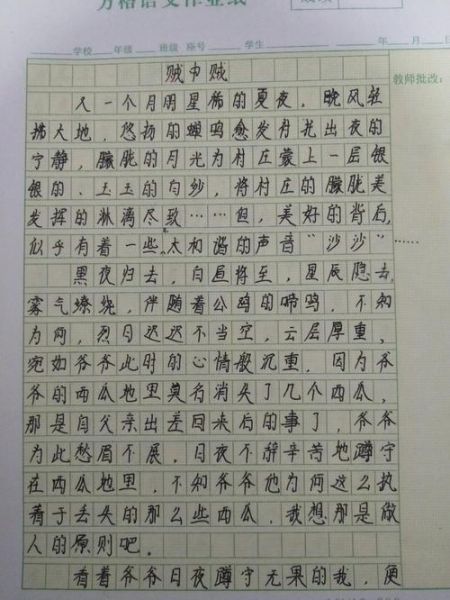 方格语文作业纸
学校 年级 班级 座号 学生 年 月 日
教师批改：
贼中贼
又一个月明星稀的夏夜，晚风轻
拂大地，悠扬的蝉鸣愈发衬托出夜的
宁静，朦胧的月光为村庄蒙上一层银
银的、玉玉的白纱，将村庄的朦胧美
发挥的淋漓尽致……但，美好的背后，
似乎有着一些不太和谐的声音“沙沙”……
黑夜归去，白追将至，星辰隐去，
雾气燎绕，伴随着公鸡的啼鸣，不知
为何，烈日迟迟不当空，云层厚重，
宛如爷爷此时的心情般沉重，因为爷
爷的西瓜地里莫名消失了几个西瓜，
那是自父亲出差回来后的事了，爷爷
为此愁眉不展，日夜不辞辛苦地蹲守
在西瓜地里，不知爷爷他为何这么执
着于丢失的那么些西瓜，我想那是做
人的原则吧。
看着爷爷日夜蹲守无果的我，便